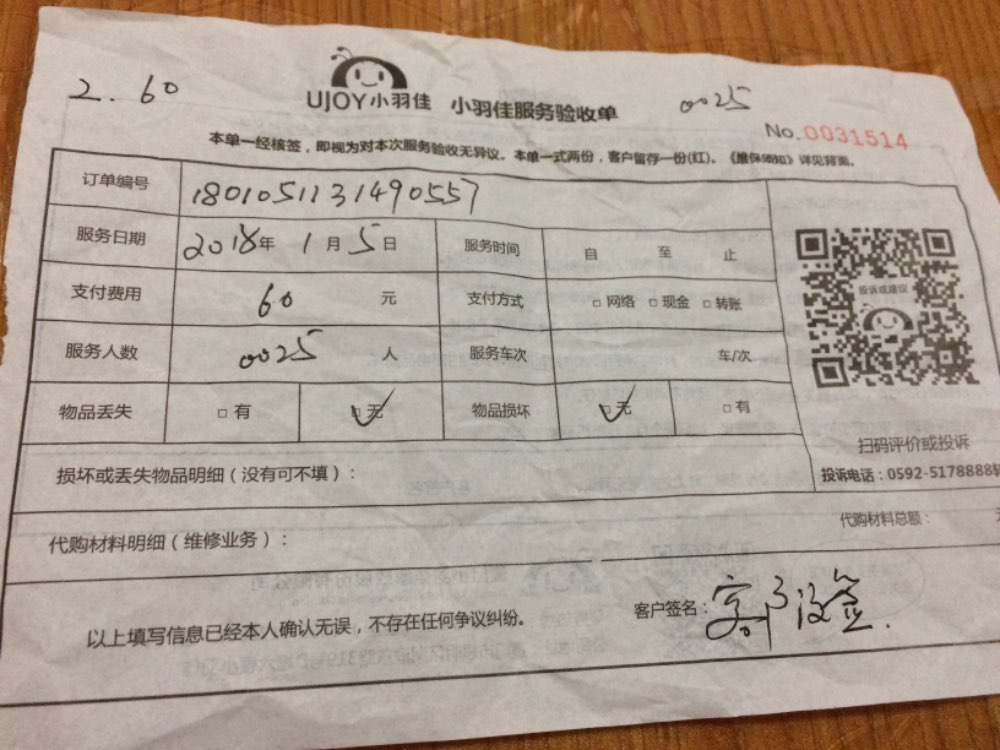 2.60
UJOY小羽佳 小羽佳服务验收单
0025
No.0031514
本单一经核签,即视为对本次服务验收无异议。本单一式两份,客户留存一份(红)。《维保须知》详见背面。
订单编号 1801051131490557
服务日期 2018年 1月 5日 服务时间 自 至 止
投诉或建议
支付费用 60 元 支付方式 □网络 □现金 □转账
服务人数 0025 人 服务车次 车/次
物品丢失 □有 ☑无 物品损坏 ☑无 □有
扫码评价或投诉
损坏或丢失物品明细(没有可不填): 投诉电话:0592-5178888转
代购材料明细(维修业务): 代购材料总额:
以上填写信息已经本人确认无误,不存在任何争议纠纷。 客户签名:客户没签.